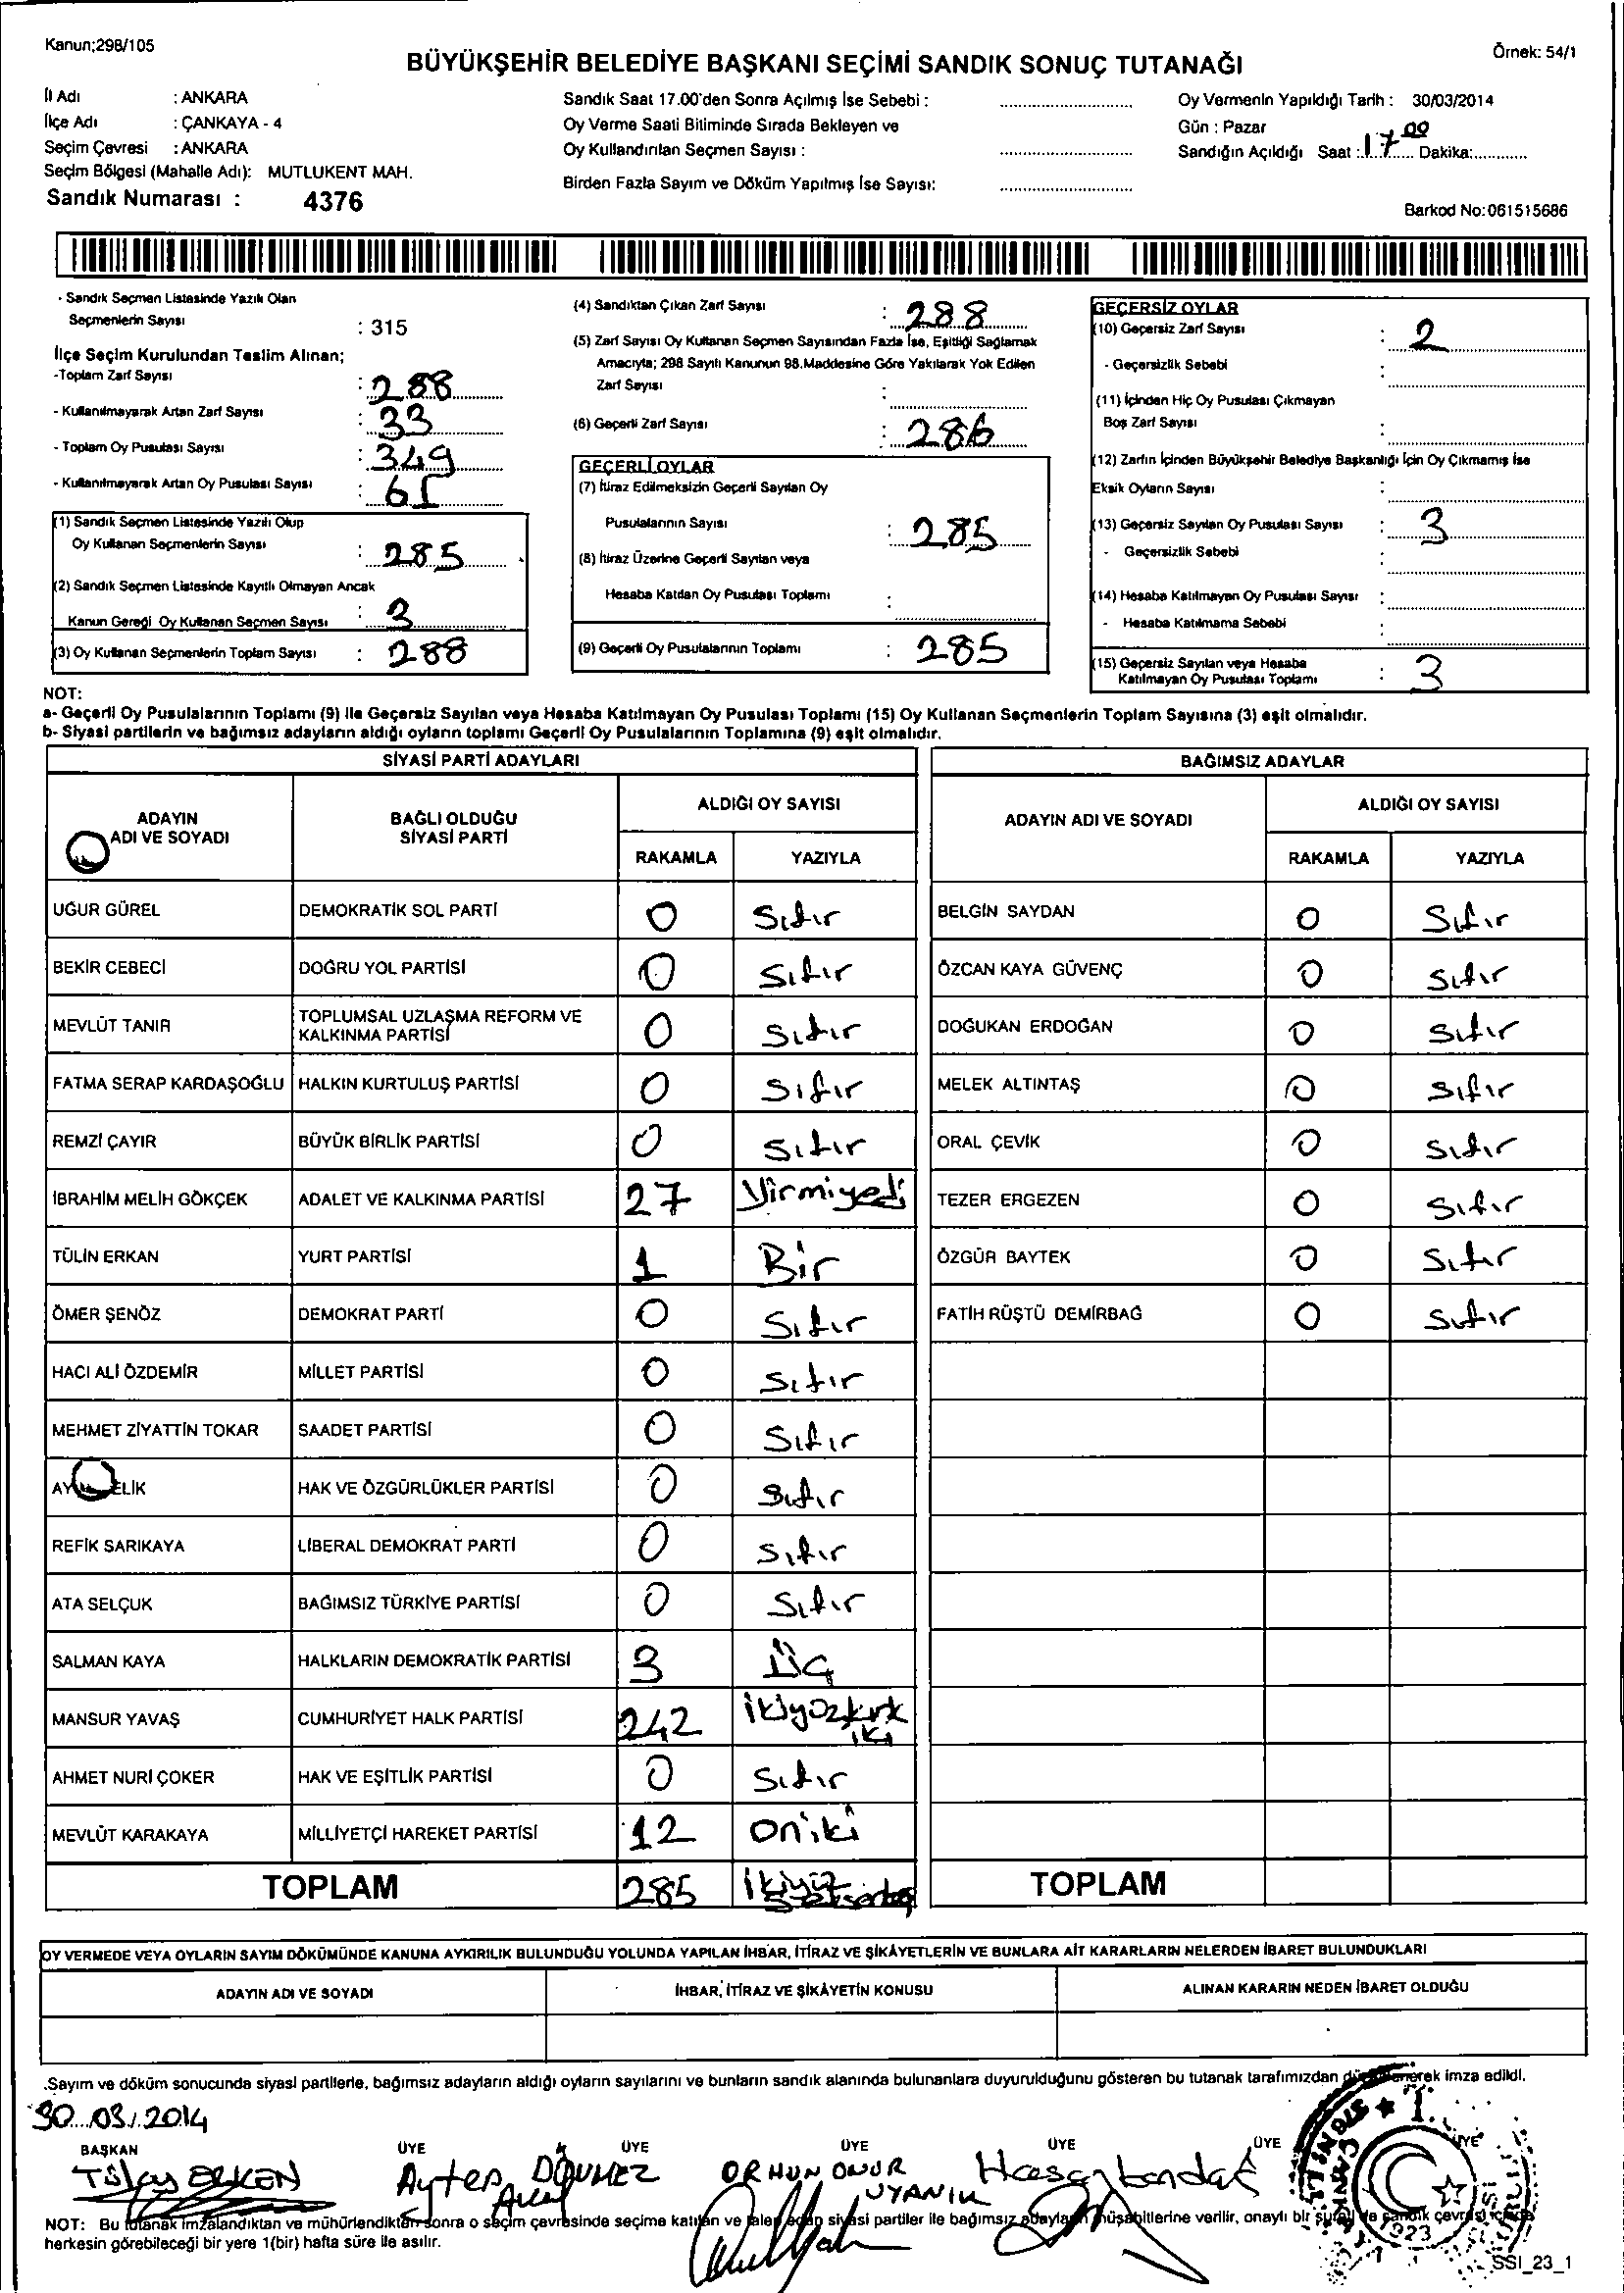 Kanun;298/105
Örnek: 54/1
BÜYÜKŞEHİR BELEDİYE BAŞKANI SEÇİMİ SANDIK SONUÇ TUTANAĞI
İl Adı : ANKARA
İlçe Adı : ÇANKAYA - 4
Seçim Çevresi : ANKARA
Seçim Bölgesi (Mahalle Adı): MUTLUKENT MAH.
Sandık Numarası : 4376
Sandık Saat 17.00'den Sonra Açılmış İse Sebebi :
Oy Verme Saati Bitiminde Sırada Bekleyen ve
Oy Kullandırılan Seçmen Sayısı :
Birden Fazla Sayım ve Döküm Yapılmış İse Sayısı:
Oy Vermenin Yapıldığı Tarih : 30/03/2014
Gün : Pazar
Sandığın Açıldığı Saat : 17 00 Dakika:
Barkod No:061515686
- Sandık Seçmen Listesinde Yazılı Olan
Seçmenlerin Sayısı : 315
İlçe Seçim Kurulundan Teslim Alınan;
-Toplam Zarf Sayısı : 288
- Kullanılmayarak Artan Zarf Sayısı : 33
- Toplam Oy Pusulası Sayısı : 349
- Kullanılmayarak Artan Oy Pusulası Sayısı : 61
(1) Sandık Seçmen Listesinde Yazılı Olup
Oy Kullanan Seçmenlerin Sayısı : 285
(2) Sandık Seçmen Listesinde Kayıtlı Olmayan Ancak
Kanun Gereği Oy Kullanan Seçmen Sayısı : 3
(3) Oy Kullanan Seçmenlerin Toplam Sayısı : 288
(4) Sandıktan Çıkan Zarf Sayısı : 288
(5) Zarf Sayısı Oy Kullanan Seçmen Sayısından Fazla İse, Eşitliği Sağlamak
Amacıyla; 298 Sayılı Kanunun 98.Maddesine Göre Yakılarak Yok Edilen
Zarf Sayısı :
(6) Geçerli Zarf Sayısı : 286
GEÇERLİ OYLAR
(7) İtiraz Edilmeksizin Geçerli Sayılan Oy
Pusulalarının Sayısı : 285
(8) İtiraz Üzerine Geçerli Sayılan veya
Hesaba Katılan Oy Pusulası Toplamı :
(9) Geçerli Oy Pusulalarının Toplamı : 285
GEÇERSİZ OYLAR
(10) Geçersiz Zarf Sayısı : 2
- Geçersizlik Sebebi :
(11) İçinden Hiç Oy Pusulası Çıkmayan
Boş Zarf Sayısı :
(12) Zarfın İçinden Büyükşehir Belediye Başkanlığı İçin Oy Çıkmamış İse
Eksik Oyların Sayısı :
(13) Geçersiz Sayılan Oy Pusulası Sayısı : 3
- Geçersizlik Sebebi :
(14) Hesaba Katılmayan Oy Pusulası Sayısı :
- Hesaba Katılmama Sebebi :
(15) Geçersiz Sayılan veya Hesaba
Katılmayan Oy Pusulası Toplamı : 3
NOT:
a- Geçerli Oy Pusulalarının Toplamı (9) ile Geçersiz Sayılan veya Hesaba Katılmayan Oy Pusulası Toplamı (15) Oy Kullanan Seçmenlerin Toplam Sayısına (3) eşit olmalıdır.
b- Siyasi partilerin ve bağımsız adayların aldığı oyların toplamı Geçerli Oy Pusulalarının Toplamına (9) eşit olmalıdır.
SİYASİ PARTİ ADAYLARI
ADAYIN ADI VE SOYADI BAĞLI OLDUĞU SİYASİ PARTİ ALDIĞI OY SAYISI
RAKAMLA YAZIYLA
UĞUR GÜREL DEMOKRATİK SOL PARTİ 0 Sıfır
BEKİR CEBECİ DOĞRU YOL PARTİSİ 0 Sıfır
MEVLÜT TANIR TOPLUMSAL UZLAŞMA REFORM VE KALKINMA PARTİSİ 0 Sıfır
FATMA SERAP KARDAŞOĞLU HALKIN KURTULUŞ PARTİSİ 0 Sıfır
REMZİ ÇAYIR BÜYÜK BİRLİK PARTİSİ 0 Sıfır
İBRAHİM MELİH GÖKÇEK ADALET VE KALKINMA PARTİSİ 27 Yirmiyedi
TÜLİN ERKAN YURT PARTİSİ 1 Bir
ÖMER ŞENÖZ DEMOKRAT PARTİ 0 Sıfır
HACI ALİ ÖZDEMİR MİLLET PARTİSİ 0 Sıfır
MEHMET ZİYATTİN TOKAR SAADET PARTİSİ 0 Sıfır
AY ELİK HAK VE ÖZGÜRLÜKLER PARTİSİ 0 Sıfır
REFİK SARIKAYA LİBERAL DEMOKRAT PARTİ 0 Sıfır
ATA SELÇUK BAĞIMSIZ TÜRKİYE PARTİSİ 0 Sıfır
SALMAN KAYA HALKLARIN DEMOKRATİK PARTİSİ 3 Üç
MANSUR YAVAŞ CUMHURİYET HALK PARTİSİ 242 ikiyüzkırk iki
AHMET NURİ ÇOKER HAK VE EŞİTLİK PARTİSİ 0 Sıfır
MEVLÜT KARAKAYA MİLLİYETÇİ HAREKET PARTİSİ 12 oniki
TOPLAM 285 ikiyüz seksenbeş
BAĞIMSIZ ADAYLAR
ADAYIN ADI VE SOYADI ALDIĞI OY SAYISI
RAKAMLA YAZIYLA
BELGİN SAYDAN 0 Sıfır
ÖZCAN KAYA GÜVENÇ 0 Sıfır
DOĞUKAN ERDOĞAN 0 Sıfır
MELEK ALTINTAŞ 0 Sıfır
ORAL ÇEVİK 0 Sıfır
TEZER ERGEZEN 0 Sıfır
ÖZGÜR BAYTEK 0 Sıfır
FATİH RÜŞTÜ DEMİRBAĞ 0 Sıfır
TOPLAM
OY VERMEDE VEYA OYLARIN SAYIM DÖKÜMÜNDE KANUNA AYKIRILIK BULUNDUĞU YOLUNDA YAPILAN İHBAR, İTİRAZ VE ŞİKÂYETLERİN VE BUNLARA AİT KARARLARIN NELERDEN İBARET BULUNDUKLARI
ADAYIN ADI VE SOYADI İHBAR, İTİRAZ VE ŞİKÂYETİN KONUSU ALINAN KARARIN NEDEN İBARET OLDUĞU
.Sayım ve döküm sonucunda siyasi partilerle, bağımsız adayların aldığı oyların sayılarını ve bunların sandık alanında bulunanlara duyurulduğunu gösteren bu tutanak tarafımızdan imza edildi.
30.03.2014
BAŞKAN ÜYE ÜYE ÜYE ÜYE ÜYE ÜYE
Tülay ERKEN Ayten DÖNMEZ ORHUN ONUR UYANIK Hasan
NOT: Bu tutanak imzalandıktan ve mühürlendikten sonra o seçim çevresinde seçime katılan ve talep eden siyasi partiler ile bağımsız adayların müşahitlerine verilir, onaylı bir sureti de sandık çevresi içinde
herkesin görebileceği bir yere 1(bir) hafta süre ile asılır.
1923
SSI_23_1